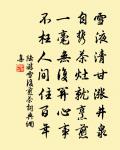 雪液清甘漲井泉
自攜茶灶就烹煎
一毫無復關心事
不枉人間住百年
陸游雪後煎茶詞典網
集